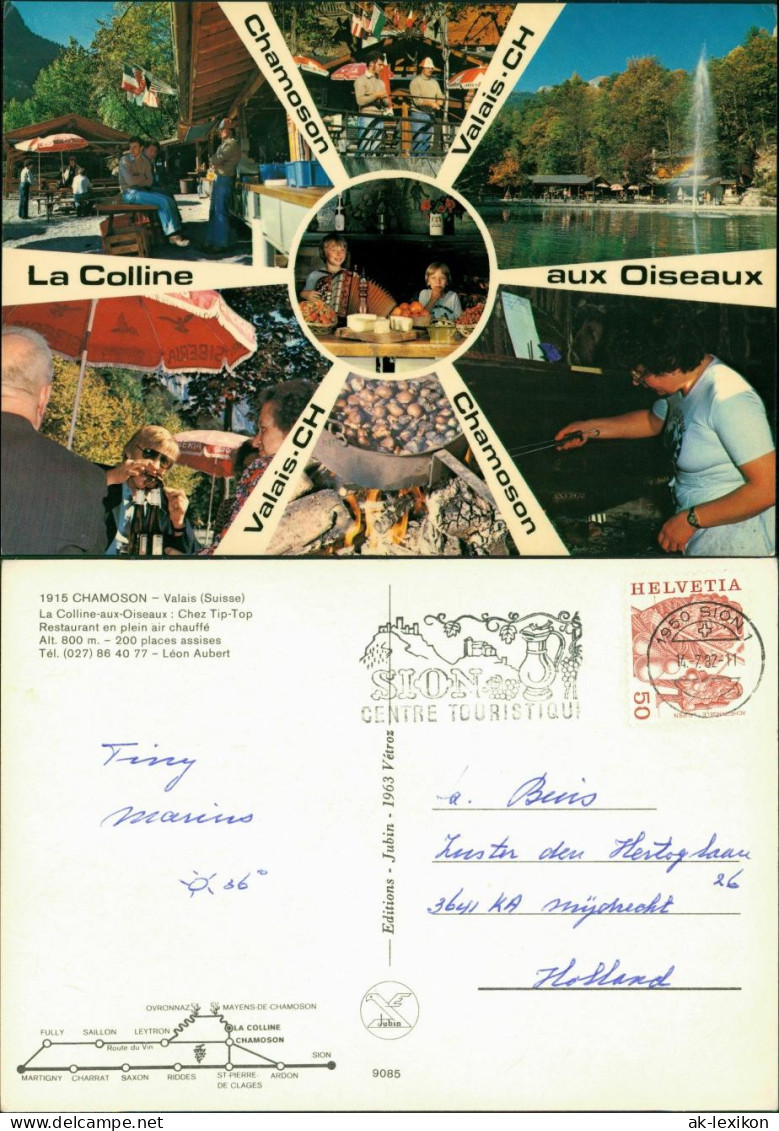 Chamoson
Valais·CH
La Colline
aux Oiseaux
SIBERIA
Valais·CH
Chamoson
1915 CHAMOSON – Valais (Suisse)
La Colline-aux-Oiseaux : Chez Tip-Top
Restaurant en plein air chauffé
Alt. 800 m. – 200 places assises
Tél. (027) 86 40 77 – Léon Aubert
SION
CENTRE TOURISTIQU
HELVETIA
1950 SION 1
14.7.82-11
50
Tiny
Marinus
36°
Editions - Jubin - 1963 Vétroz
Zuster den Hertoglaan
26
3641 KA Mijdrecht
Holland
OVRONNAZ
MAYENS-DE-CHAMOSON
FULLY
SAILLON
LEYTRON
LA COLLINE
Route du Vin
CHAMOSON
SION
MARTIGNY
CHARRAT
SAXON
RIDDES
ST-PIERRE-
DE CLAGES
ARDON
Jubin
9085
www.delcampe.net
ak-lexikon